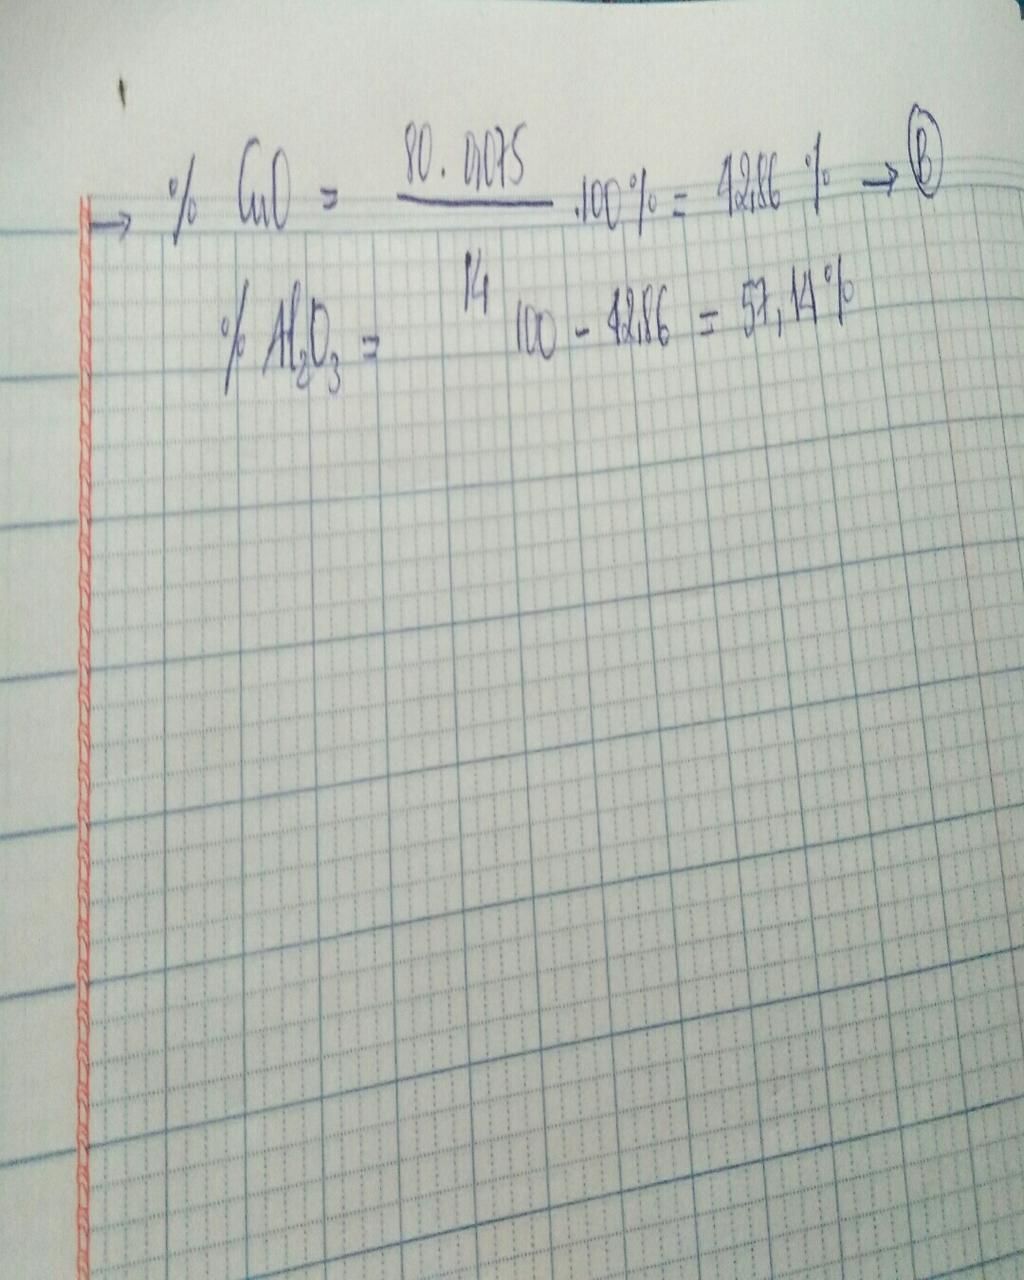 → % CuO = 80 . 0,075 / 14 .100% = 42,86 % → B
% Al₂O₃ = 100 - 42,86 = 57,14%